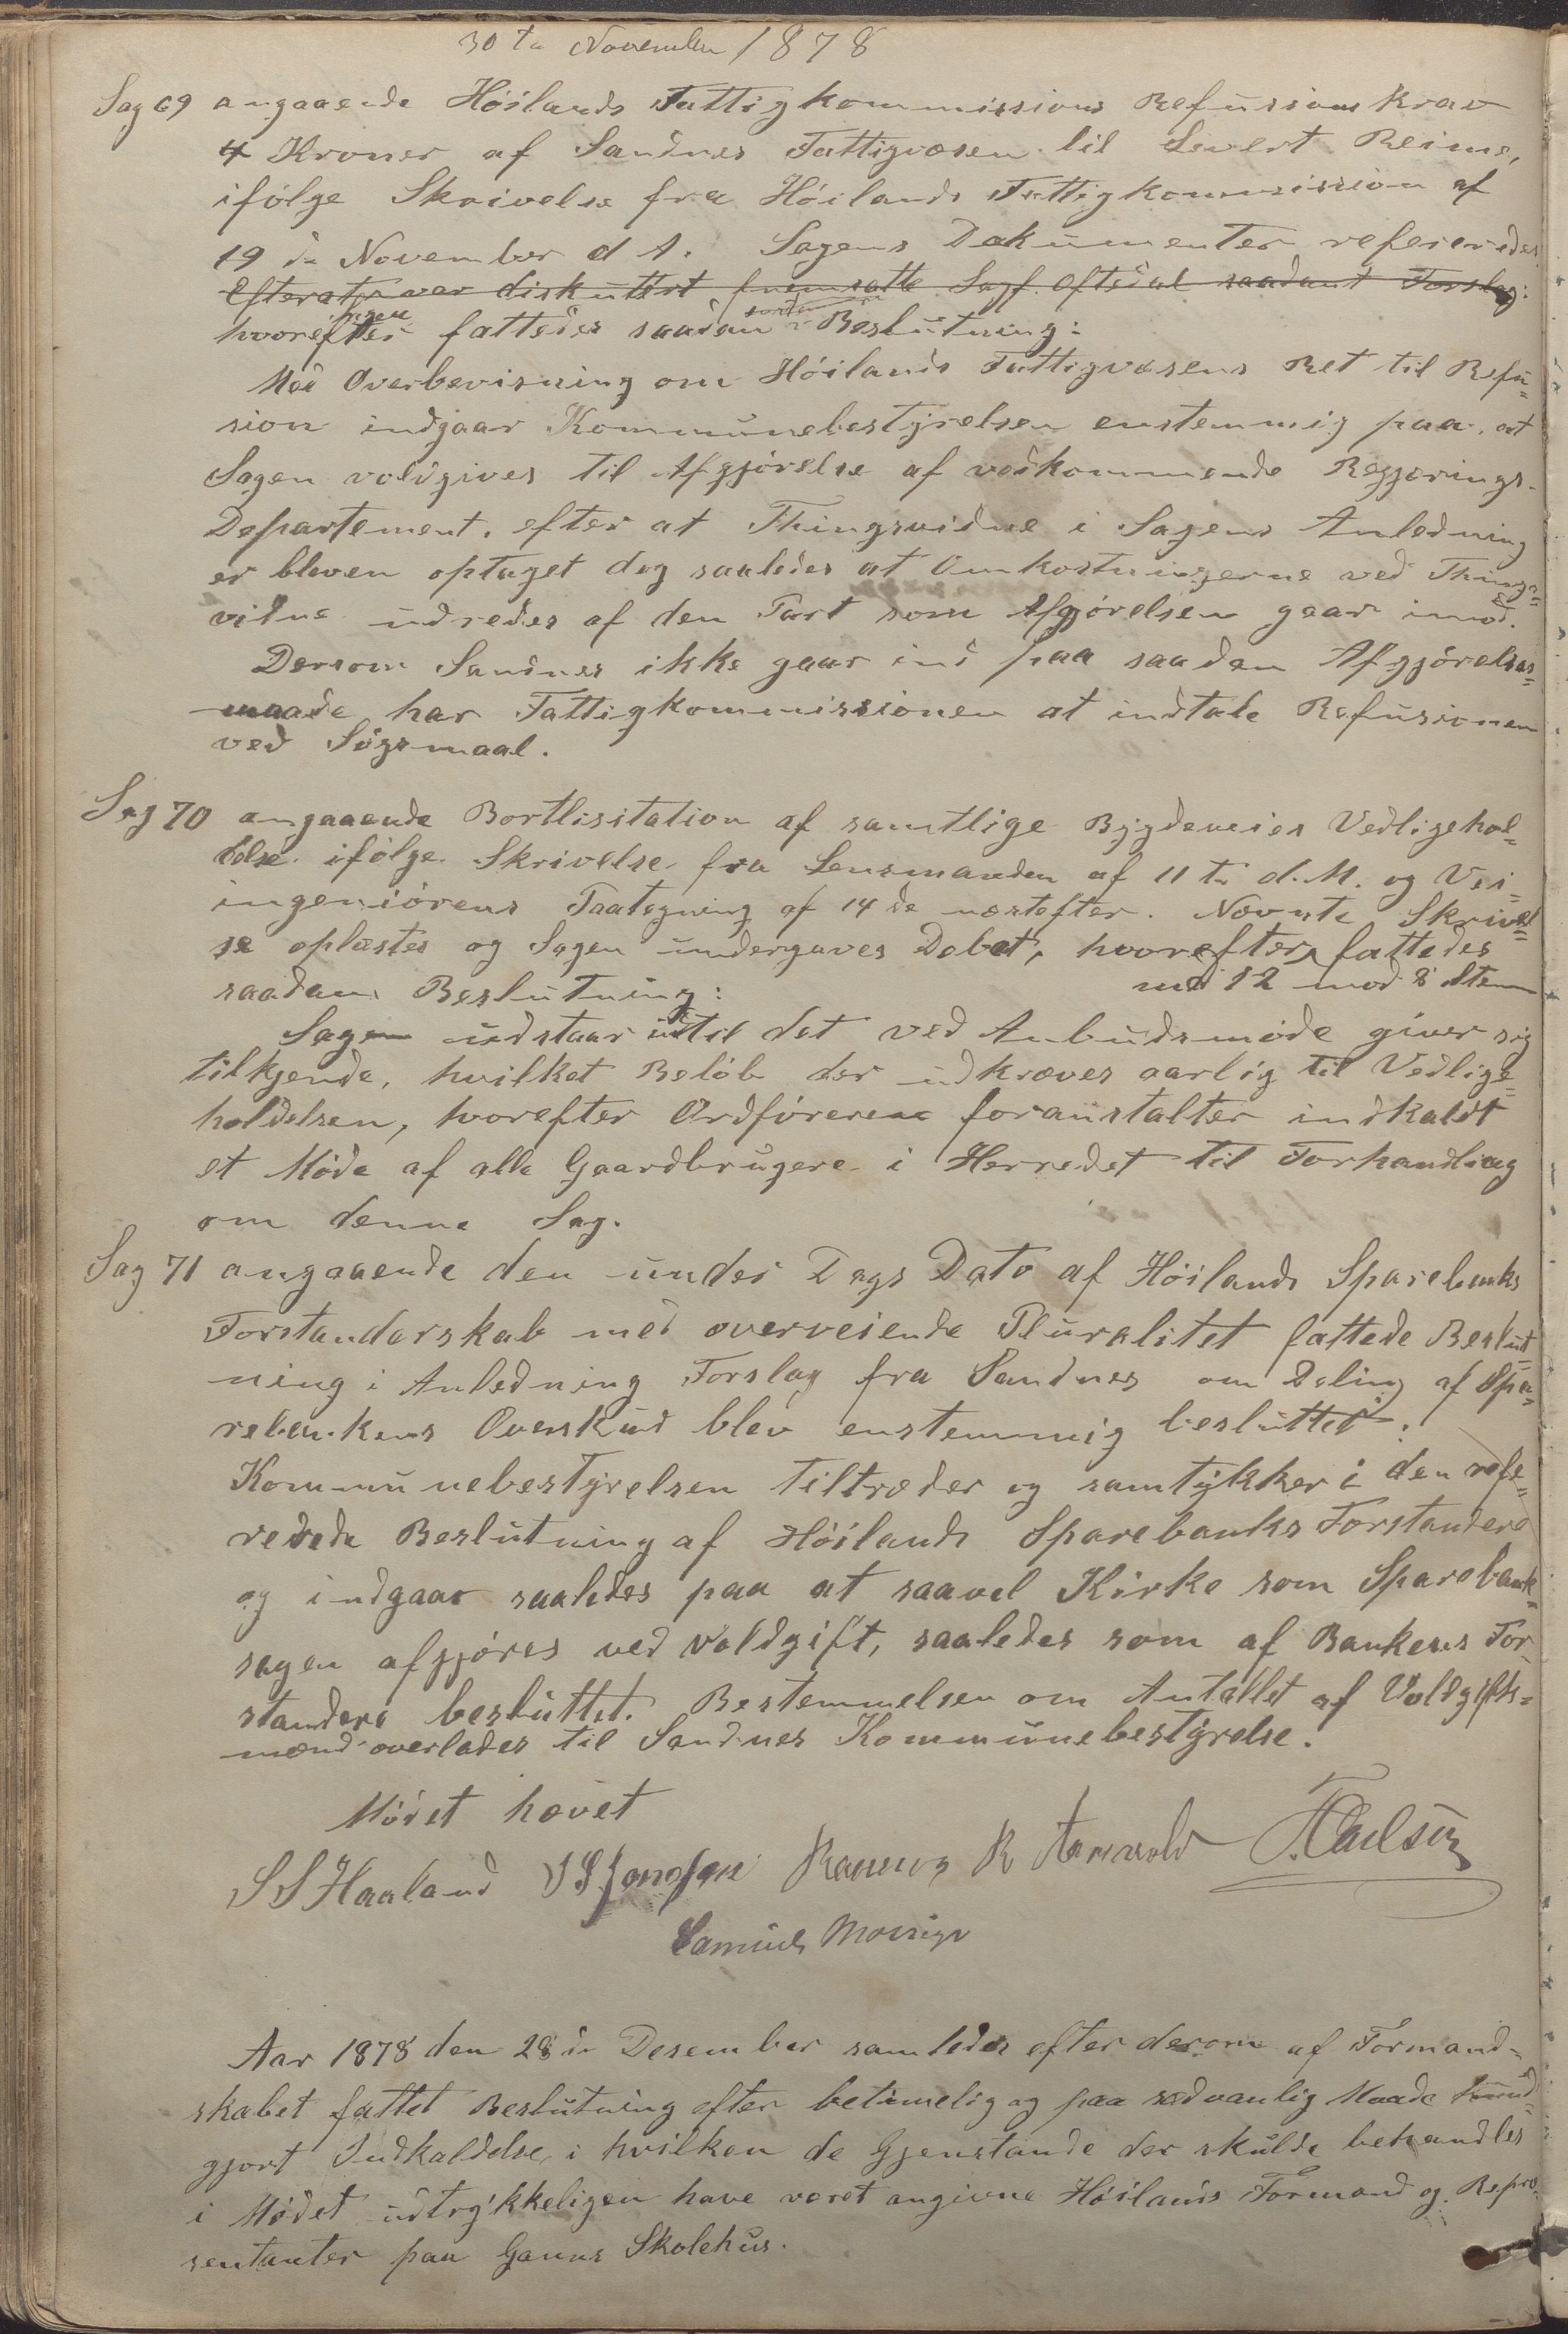 30te November 1878
Sag 69 angaaende Höilands Fattigkommissions Refusions Krav
4 Kroner af Sandnes Fattigvæsen til Sivert Reime,
ifölge Skrivelse fra Höilands Fattigkommission af
19de November d A. Sagens Dokumenter refereredes
Efterat var diskuttert fremsatte Saadant Forslag:
hvorefter fattedes saadan Beslutning:
Med Overbevisning om Höilands Fattigvæsens Ret til Refu=
sion indgaar Kommunebestyrelsen enstemmig paa, at
Sagen voldgives til Afgjörelse af vedkommende Regjerings-
Departement, efter at Thingsvidne i Sagens Anledning
er bleven optaget dog saaledes at Omkostningerne ved Things=
vidne udredes af den Part som Afgjörelsen gaar imod.
Dersom Sandnes ikke gaar ind paa saadan Afgjörelses=
maade har Fattigkommissionen at indtale Refusionen
ved Sögsmaal.
Sag 70 angaaende Bortlisitation af samtlige Bygdeveies Vedligehol=
delse ifölge Skrivelse fra Lensmanden af 11te d. M. og Vei=
ingeniörens Paategning af 14de næstefter. Nævnte Skrivel=
se oplæstes og Sagen undergaves Debat, hvorefter fattedes
med 12 mod 8 Stem
saadan Beslutning:
Sagen udstaar indtil det ved Anbudsmöde giver sig
tilkjende, hvilket Belöb der udkræves aarlig til Vedlige=
holdelsen, hvorefter Ordföreren foranstalter indkaldt
et Möde af alle Gaardbrugere i Herredet til Forhandling
om denne Sag.
Sag 71 angaaende den under Dags Dato af Höilands Sparebanks
Forstanderskab med overveiende Pluralitet fattede Beslut=
ning i Anledning Forslag fra Sandnes om Deling af Spa=
rebankens Overskud blev enstemmig besluttet:
Kommunebestyrelsen tiltræder og samtykker i den refe=
rerede Beslutning af Höilands Sparebanks Forstandere
og indgaar saaledes paa at saavel Kirke som Sparebank=
sagen afgjöres ved Voldgift, saaledes som af Bankens For=
standere besluttet. Bestemmelsen om Antallet af Voldgifts=
mænd overlades til Sandnes Kommunebestyrelse.
Mödet hævet
S S Haaland Rasmus R
Samuel
Aar 1878 den 28de Desember samledes efter derom af Formand-
skabet fattet Beslutning efter betimelig og paa sædvanlig Maade kund=
gjort Indkaldelse, i hvilken de Gjenstande der skulde behandles
i Mödet udtrykkeligen have været angivne Höilands Formænd og Repræ=
sentanter paa Ganns Skolehus.